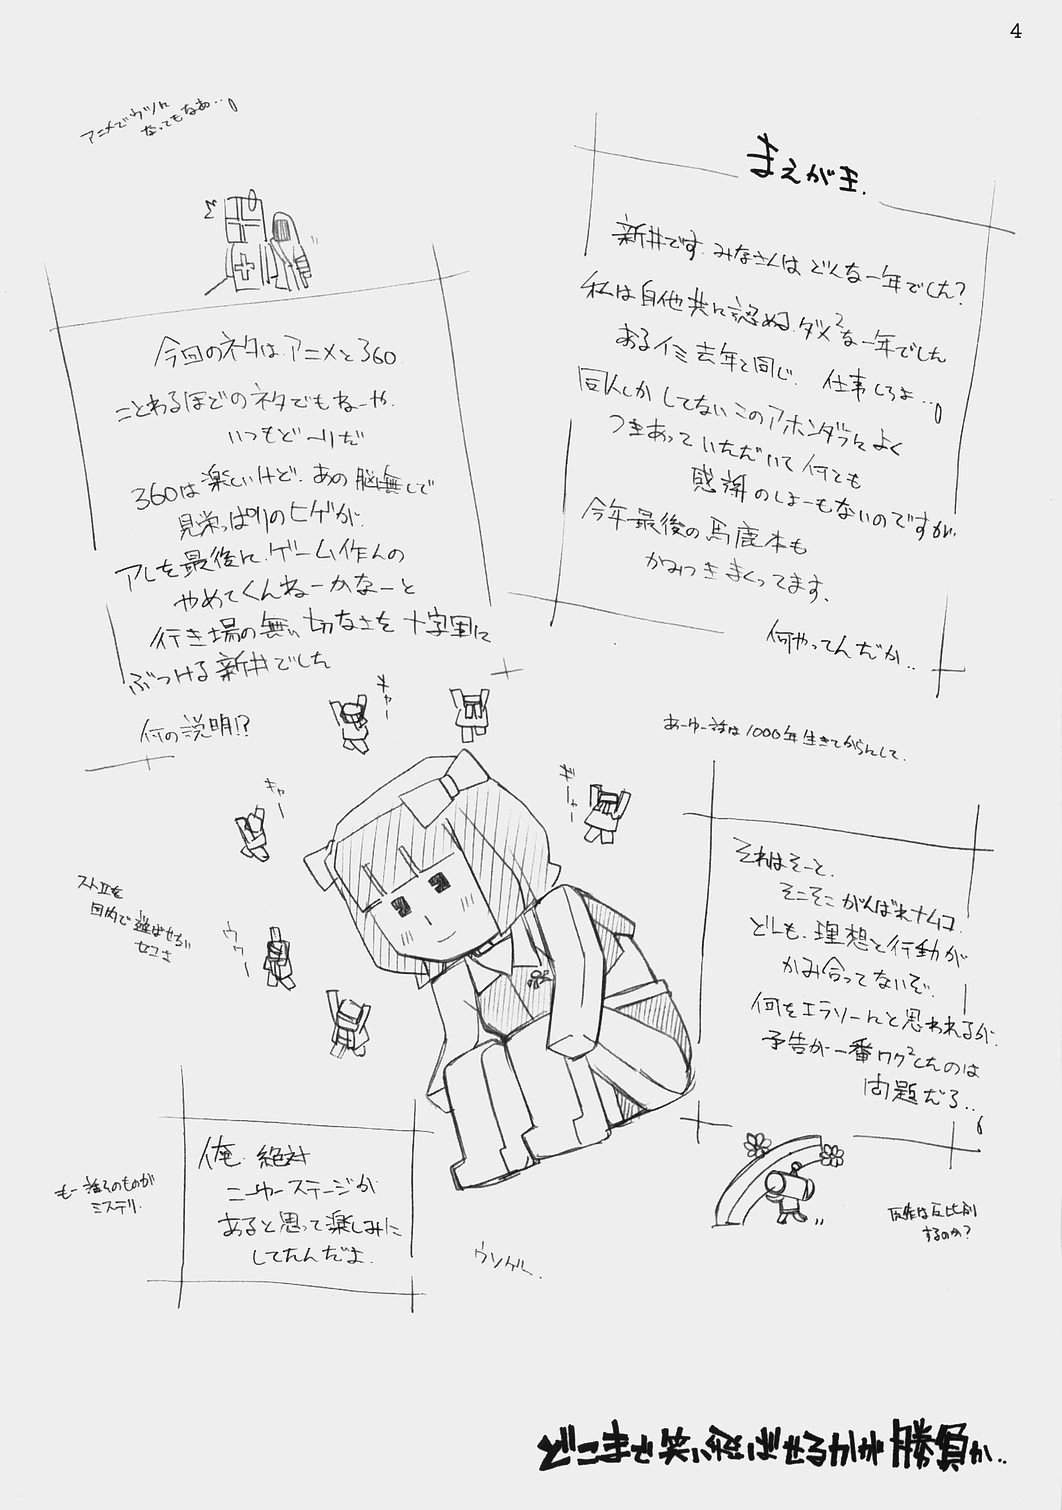 4
まえがき.
新井です.みなさんは どんな一年でした?
私は自他共に認める.ダメ²な一年でした
あるイミ去年と同じ. 仕事しろよ…
同人しか してない このアホンダラによく
つきあって いただいて 何とも
感謝のしよーもないのですが
今年最後の馬鹿本も
かみつきまくってます.
何やってんだか..
アニメでウツに
なってもなあ…
今回のネタは.アニメと360
ことわるほどのネタでもねーや.
いつもどーりだ
360は楽しいけど.あの脳無しで
見栄っぱりのヒゲが.
アレを最後に.ゲーム作んの
やめてくんねーかなーと
行き場の無い切なさを十字軍に
ぶつける新井でした
何の説明!?
キャー
キャー
ギャー
ウゥー
あーゆー話は1000年生きてからんして.
それはそーと.
そこそこがんばれナムコ.
どーも.理想と行動が
かみ合ってないぞ.
何をエラソーにと思われるが.
予告が一番ワク²したのは
問題だろ..
するのか?
俺.絶対
ニューステージが
あると思って楽しみに
してたんだよ.
もー誰そのものが
ミステリ.
どこまで笑い飛ばせるかが勝負か..